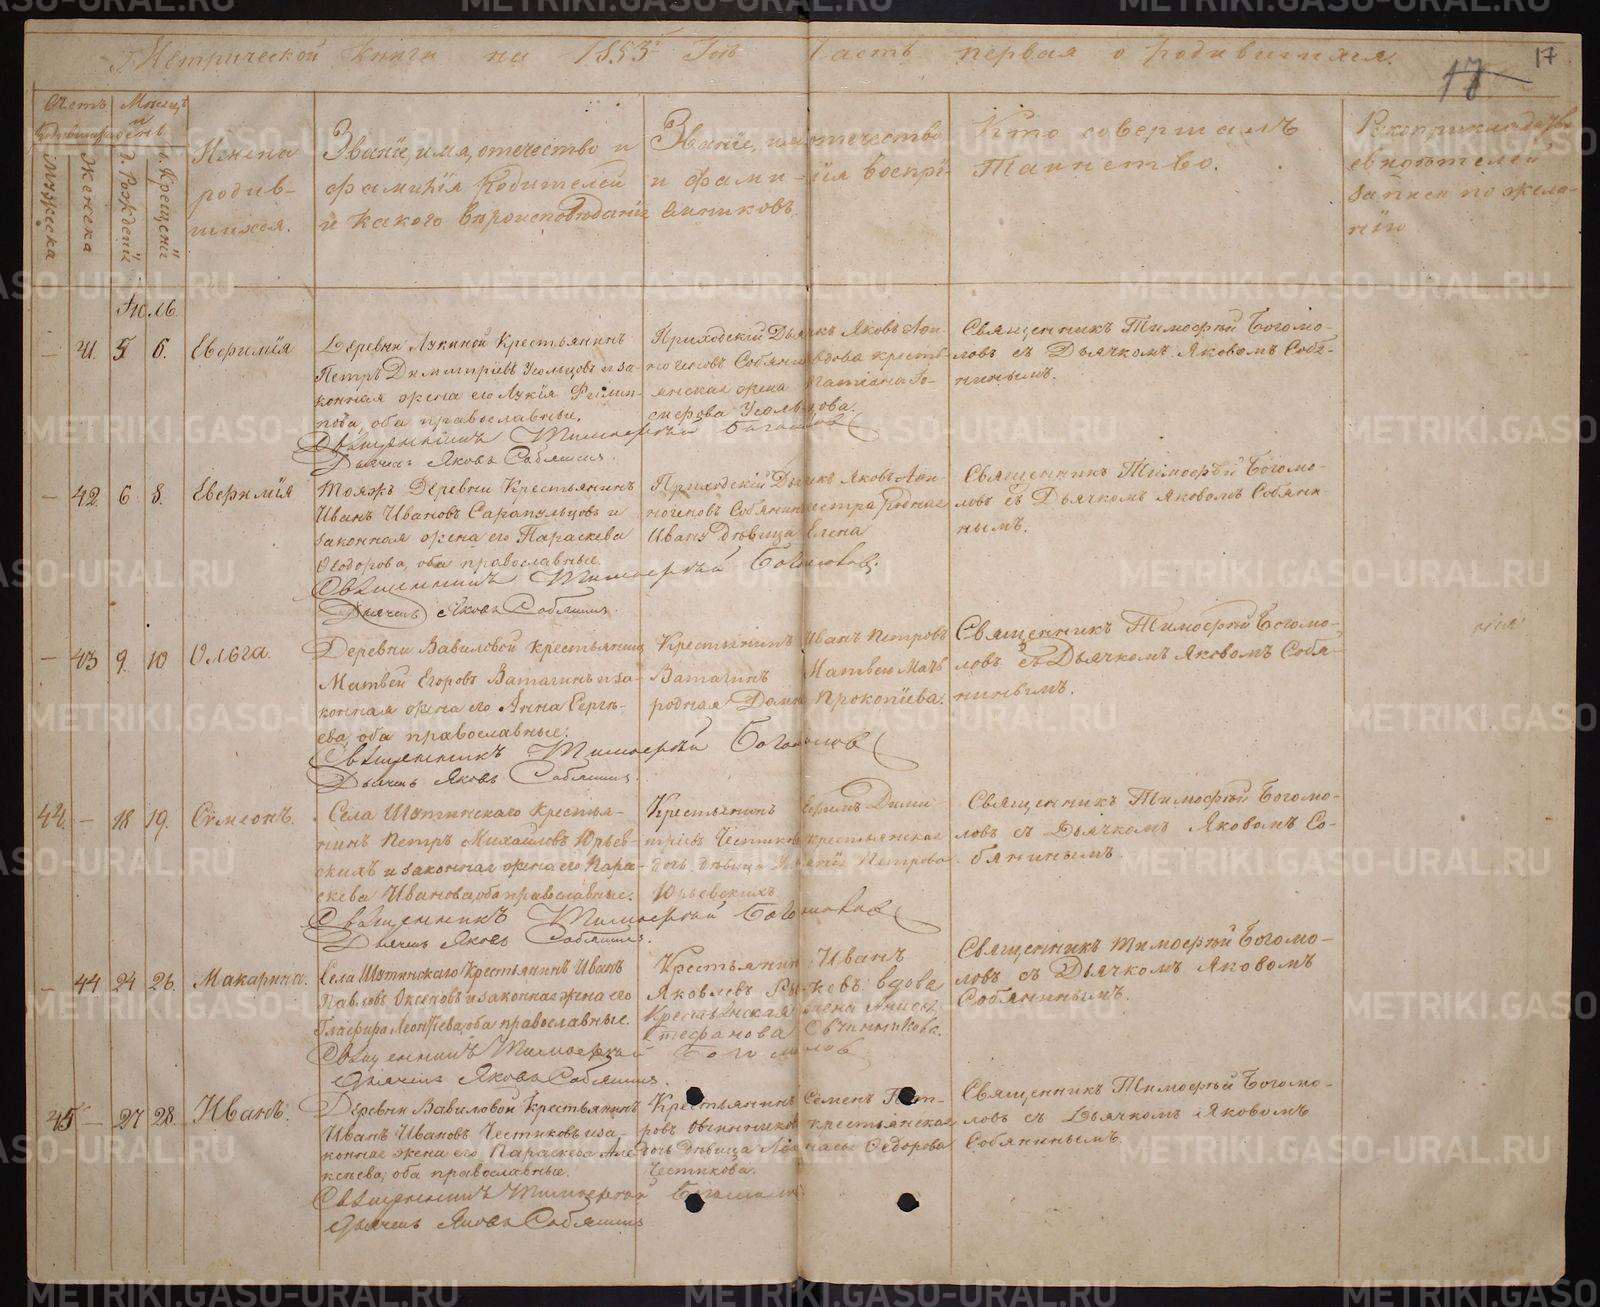 Метрической книги на 1853й Годъ Часть первая о родившихся.
17
17
Счетъ родившихся
Мужеска
Женска
Мѣсяцъ и день
Рожденій
Крещенія
Имена
родив-
шихся.
Званіе, имя, отечество и
фамилія Родителей
и какого вѣроисповѣданія
Званіе, имя, отечество
и фамилія воспрі-
емниковъ.
Кто совершалъ
Таинство.
Рукоприкладство
свидѣтелей
записи по жела-
нію
Іюль
— 41. 5 6. Евфимія
Деревни Лукиной Крестьянинъ
Петръ Димитріевъ Усольцовъ и за-
конная жена его Лукія Филип-
пова, оба православные.
Священникъ Тимофѣй Богомоловъ
Дьячекъ Яковъ Собянинъ.
Приходскій Дьячекъ Яковъ Афи-
ногеновъ Собянинъ вдова кресть-
янская жена Татіана Іо-
сифова Усольцова.
Священникъ Тимофѣй Богомо-
ловъ съ Дьячкомъ Яковомъ Собя-
нинымъ.
— 42. 6 8. Евфимія
Тояжъ Деревни Крестьянинъ
Иванъ Ивановъ Сарапульцовъ и
законная жена его Параскева
Ѳеодорова, оба православные.
Священникъ Тимофѣй Богомоловъ.
Дьячекъ Яковъ Собянинъ.
Приходскій Дьячекъ Яковъ Афи-
ногеновъ Собянинъ сестра Родная
Ивану Дѣвица Елена
Священникъ Тимофѣй Богомо-
ловъ съ Дьячкомъ Яковомъ Собяни-
нымъ.
— 43 9. 10 Ольга.
Деревни Вавиловой крестьянинъ
Матвей Егоровъ Ватагинъ и за-
конная жена его Анна Сергѣ-
ева, оба православные.
Священникъ Тимофѣй Богомоловъ
Дьячекъ Яковъ Собянинъ.
Крестьянинъ Иванъ Петровъ
Ватагинъ Матвею Мать
родная Домна Прокопіева.
Священникъ Тимофѣй Богомо-
ловъ съ Дьячкомъ Яковомъ Собя-
нинымъ.
44. — 18 19. Сѵмеонъ.
Села Шутинскаго Крестья-
нинъ Петръ Михайловъ Юрьев-
скихъ и законная жена его Пара-
скева Иванова, оба православные.
Священникъ Тимофѣй Богомоловъ
Дьячекъ Яковъ Собянинъ.
Крестьянинъ Ефимъ Дими-
тріевъ Честиковъ крестьянская
дочь дѣвица Петрова
Юрьевскихъ
Священникъ Тимофѣй Богомо-
ловъ съ Дьячкомъ Яковомъ Со-
бянинымъ.
— 44 24 26. Макарина.
Села Шутинскаго Крестьянинъ Иванъ
Павловъ Оксеновъ и законная жена его
Глафира Леонтіева, оба православные.
Священникъ Тимофѣй Богомоловъ
Дьячекъ Яковъ Собянинъ.
Крестьянинъ Иванъ
Яковлевъ вдова
Крестьянская жена Анисья
Стефанова Овчинникова.
Священникъ Тимофѣй Богомо-
ловъ съ Дьячкомъ Яковомъ
Собянинымъ.
45 — 27 28. Иванъ.
Деревни Вавиловой Крестьянинъ
Иванъ Ивановъ Честиковъ и за-
конная жена его Параскева Але-
ксеева, оба православные.
Священникъ Тимофѣй Богомоловъ
Дьячекъ Яковъ Собянинъ
Крестьянинъ Семенъ Пет-
ровъ Овчинниковъ крестьянская
дочь дѣвица Афанасья Ѳедорова
Честикова.
Священникъ Тимофѣй Богомо-
ловъ съ Дьячкомъ Яковомъ
Собянинымъ.
METRIKI.GASO-URAL.RU